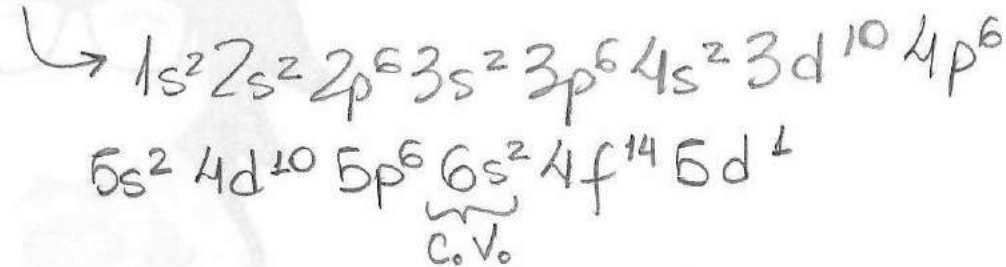 → 1s² 2s² 2p⁶ 3s² 3p⁶ 4s² 3d¹⁰ 4p⁶
5s² 4d¹⁰ 5p⁶ 6s² 4f¹⁴ 5d¹
C.V.